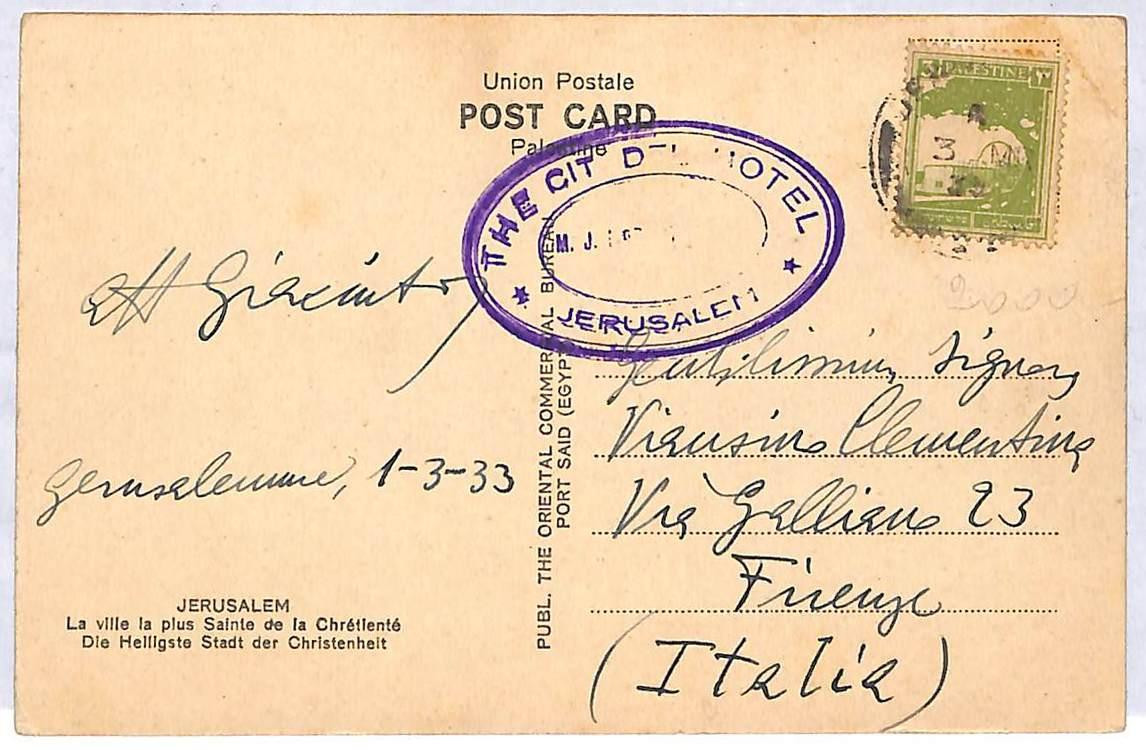 Union Postale
POST CARD
Palestine
PALESTINE
THE CIT HOTEL
M. J.
JERUSALEM
aff Giacinto
Gerusalemme, 1-3-33
Signora
Clementina
Via Galliano 23
Firenze
(Italia)
PUBL. THE ORIENTAL COMMERCIAL BUREAU
PORT SAID (EGYPT)
JERUSALEM
La ville la plus Sainte de la Chrétienté
Die Heiligste Stadt der Christenheit